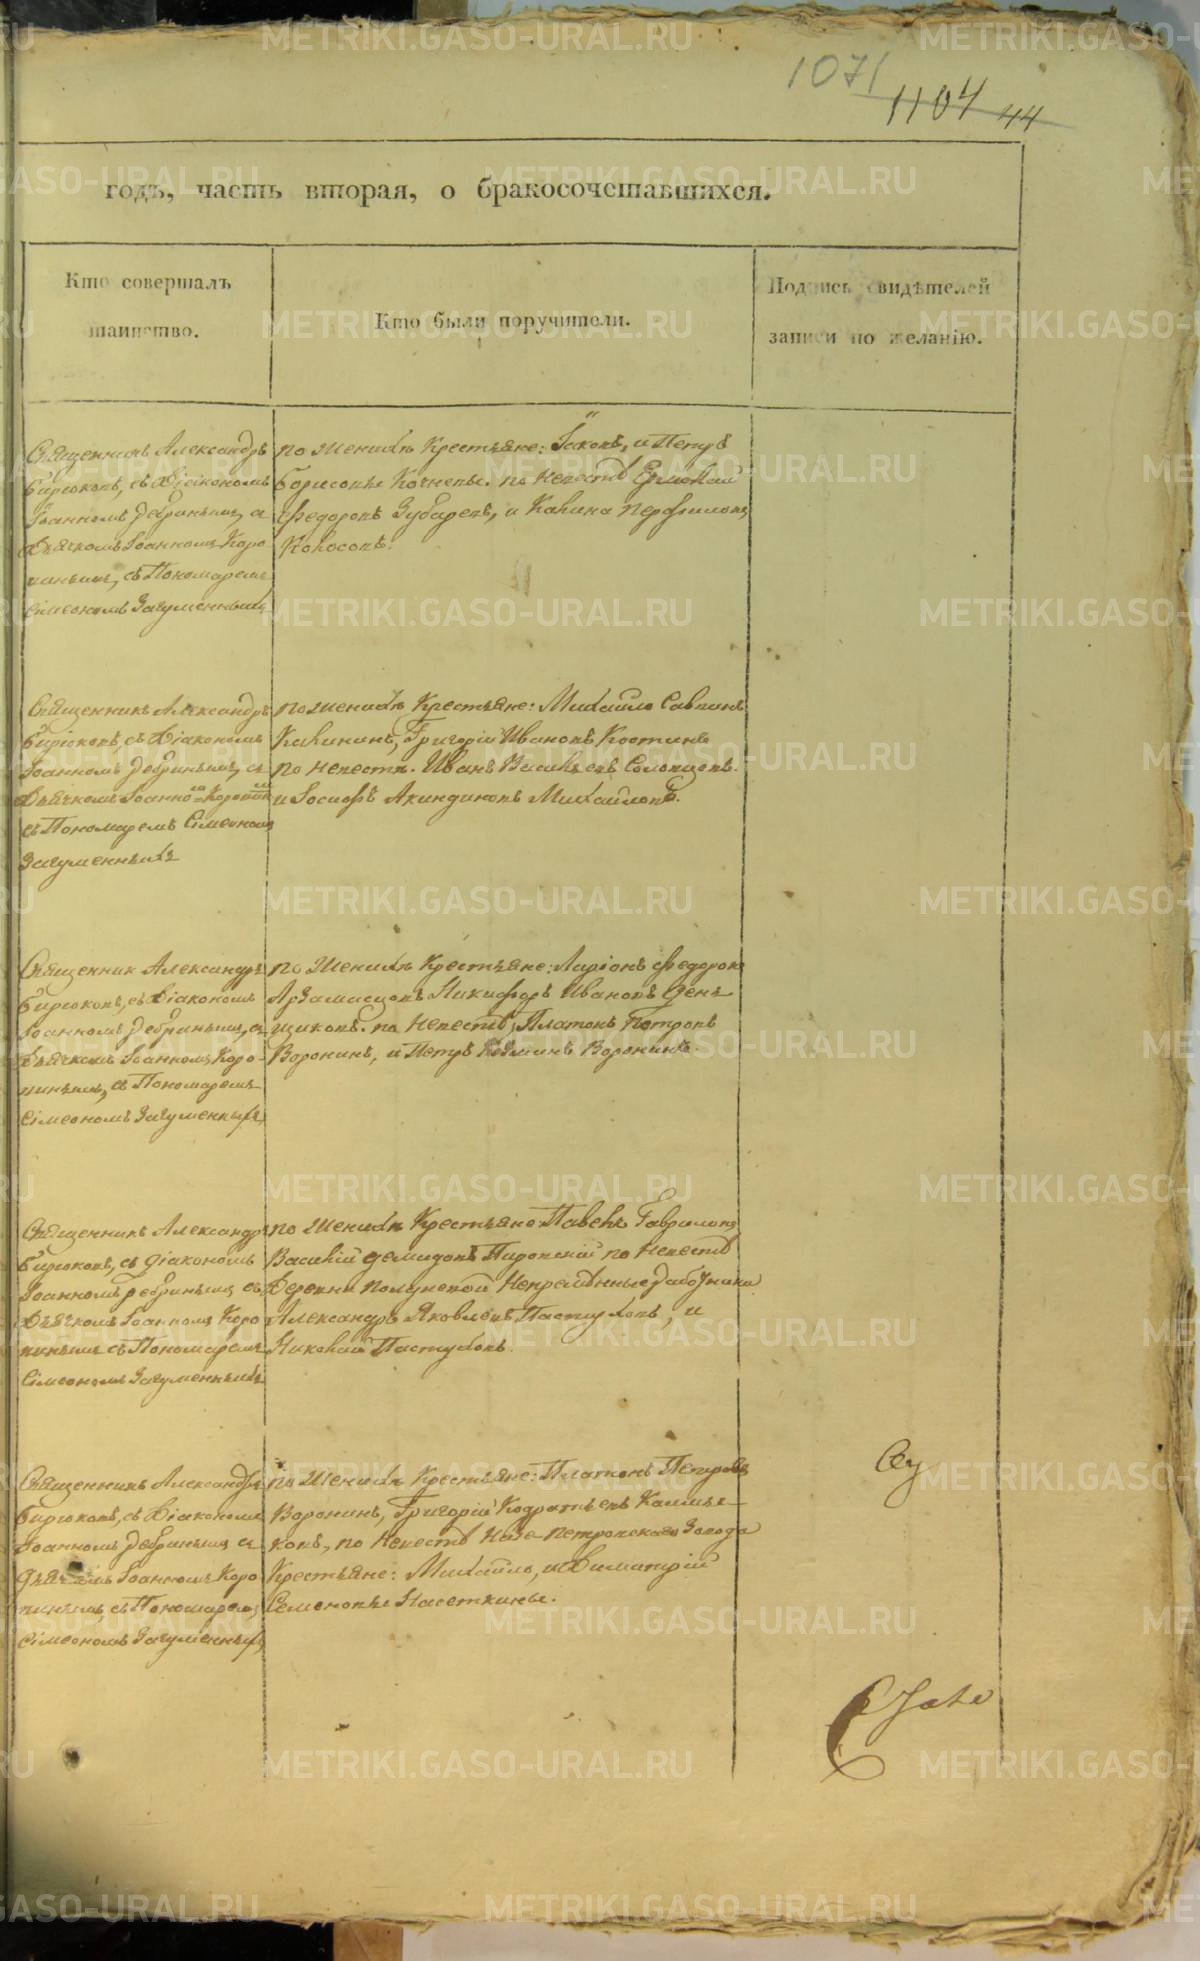 1071
1104 44
годъ, часть вторая, о бракосочетавшихся.
Кто совершалъ
таинство.
Кто были поручители.
Подпись свидѣтелей
записи по желанію.
Священникъ Александръ
Бирюковъ, съ Діакономъ
Іоанномъ Ребринымъ, съ
Дьячкомъ Іоанномъ Коро
пинымъ, съ Пономаремъ
Сімеономъ Загуменныхъ
по женихѣ Крестьяне: Іаковъ, и Петръ
Борисовы Кочневы. по невестѣ Ермолай
Федоровъ Зубаревъ, и Калина Перфиловъ
Колосовъ.
Священникъ Александръ
Бирюковъ, съ Діакономъ
Іоанномъ Ребринымъ, съ
Дьячкомъ Іоанномъ
съ Пономаремъ Сімеономъ
Загуменныхъ
по женихѣ Крестьяне: Михайло Саввинъ
Калининъ, Григорій Ивановъ Костинъ
по невестѣ. Иванъ Васильевъ Соловцовъ.
и Іосифъ Акиндиновъ Михайловъ.
Священник Александръ
Бирюковъ, съ Діакономъ
Іоанномъ Ребринымъ, съ
Дьячкомъ Іоанномъ Коро-
пинымъ, съ Пономаремъ
Сімеономъ Загуменныхъ
по женихѣ Крестьяне: Ларіонъ Федоровъ
Арзамасцовъ Никифоръ Ивановъ Ден
щиковъ. по невестѣ, Платонъ Петровъ
Воронинъ, и Петръ Козминъ Воронинъ.
Священникъ Александръ
Бирюковъ, съ діакономъ
Іоанномъ Ребринымъ съ
Дьячкомъ Іоанномъ Коро
пинымъ съ Пономаремъ
Сімеономъ Загуменныхъ
по женихѣ Крестьяне Павелъ Гавриловъ
Василій Демидовъ Пировскій по невестѣ
Деревни Полуневой Непремѣнные работники
Александръ Яковлевъ Пастуховъ, и
Николай Пастуховъ.
Священникъ Александръ
Бирюковъ, съ Діакономъ
Іоанномъ Ребринымъ съ
Дьячкомъ Іоанномъ Коро
пинымъ, съ Пономаремъ
Сімеономъ Загуменныхъ
по женихѣ Крестьяне: Платонъ Петровъ
Воронинъ, Григорій Кодратьевъ
ковъ, по невестѣ Нязе-Петровскаго Завода
Крестьяне: Михайло, и Димитрій
Семеновы Насеткины.
METRIKI.GASO-URAL.RU